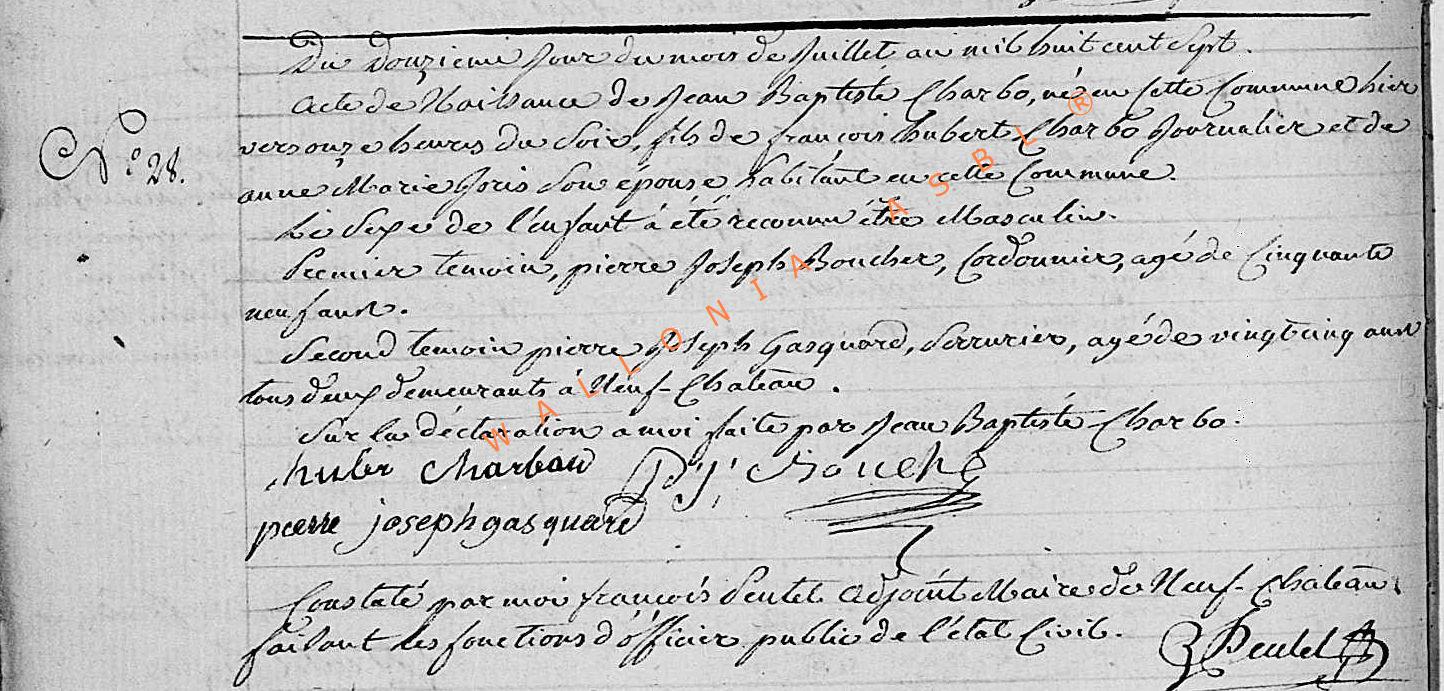 Du Douzieme Jour du mois de Juillet an mil huit cent Sept.
Acte de Naissance de Jean Baptiste Charbo, né en Cette Commune hier
vers onze heures du Soir, fils de françois hubert Charbo Journalier et de
anne Marie Joris Son épouse habitant en cette Commune.
Le Sexe de l'enfant à été reconnu être Masculin.
Premier temoin, pierre Joseph Boucher, Cordonnier, agé de Cinquante
neuf ans.
Second temoin pierre Joseph Gasquard, Serrurier, agé de vingt cinq ans
tous deux demeurants à Neuf-Chateau.
Sur la déclaration a moi faite par Jean Baptiste Charbo.
N.° 28.
huber Charbau P J Bouche
pierre joseph gasquard
Constaté par moi françois Pentet Adjoint Maire de Neuf-Chateau,
faisant les fonctions d'officier public de l'état Civil.
Pentet
WALLONIA ASBL ®